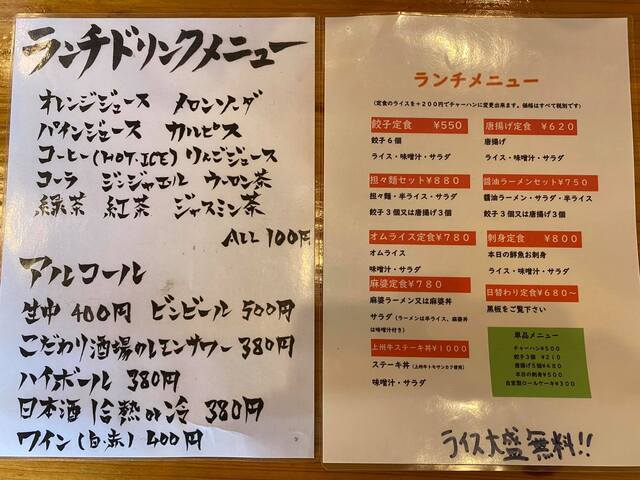 ランチドリンクメニュー
オレンジジュース メロンソーダ
パインジュース カルピス
コーヒー(HOT.ICE) りんごジュース
コーラ ジンジャエル ウーロン茶
緑茶 紅茶 ジャスミン茶
ALL 100円
アルコール
生中 400円 ビンビール 500円
こだわり酒場のレモンサワー 380円
ハイボール 380円
日本酒1合 熱or冷 380円
ワイン(白・赤) 400円
ランチメニュー
(定食のライスを+200円でチャーハンに変更出来ます。価格はすべて税別です)
餃子定食 ¥550
餃子6個
ライス・味噌汁・サラダ
唐揚げ定食 ¥620
唐揚げ
ライス・味噌汁・サラダ
担々麺セット¥880
担々麺・半ライス・サラダ
餃子3個又は唐揚げ3個
醤油ラーメンセット¥750
醤油ラーメン・サラダ・半ライス
餃子3個又は唐揚げ3個
オムライス定食¥780
オムライス
味噌汁・サラダ
刺身定食 ¥800
本日の鮮魚お刺身
ライス・味噌汁・サラダ
麻婆定食¥780
麻婆ラーメン又は麻婆丼
サラダ(ラーメンは半ライス、麻婆丼
は味噌汁付き)
日替わり定食¥680～
黒板をご覧下さい
上州牛ステーキ丼¥1000
ステーキ丼(上州牛トモサンカク使用)
味噌汁・サラダ
単品メニュー
チャーハン¥500
餃子3個 ¥210
唐揚げ5個¥480
本日の刺身¥500
自家製ロールケーキ¥300
ライス大盛無料!!